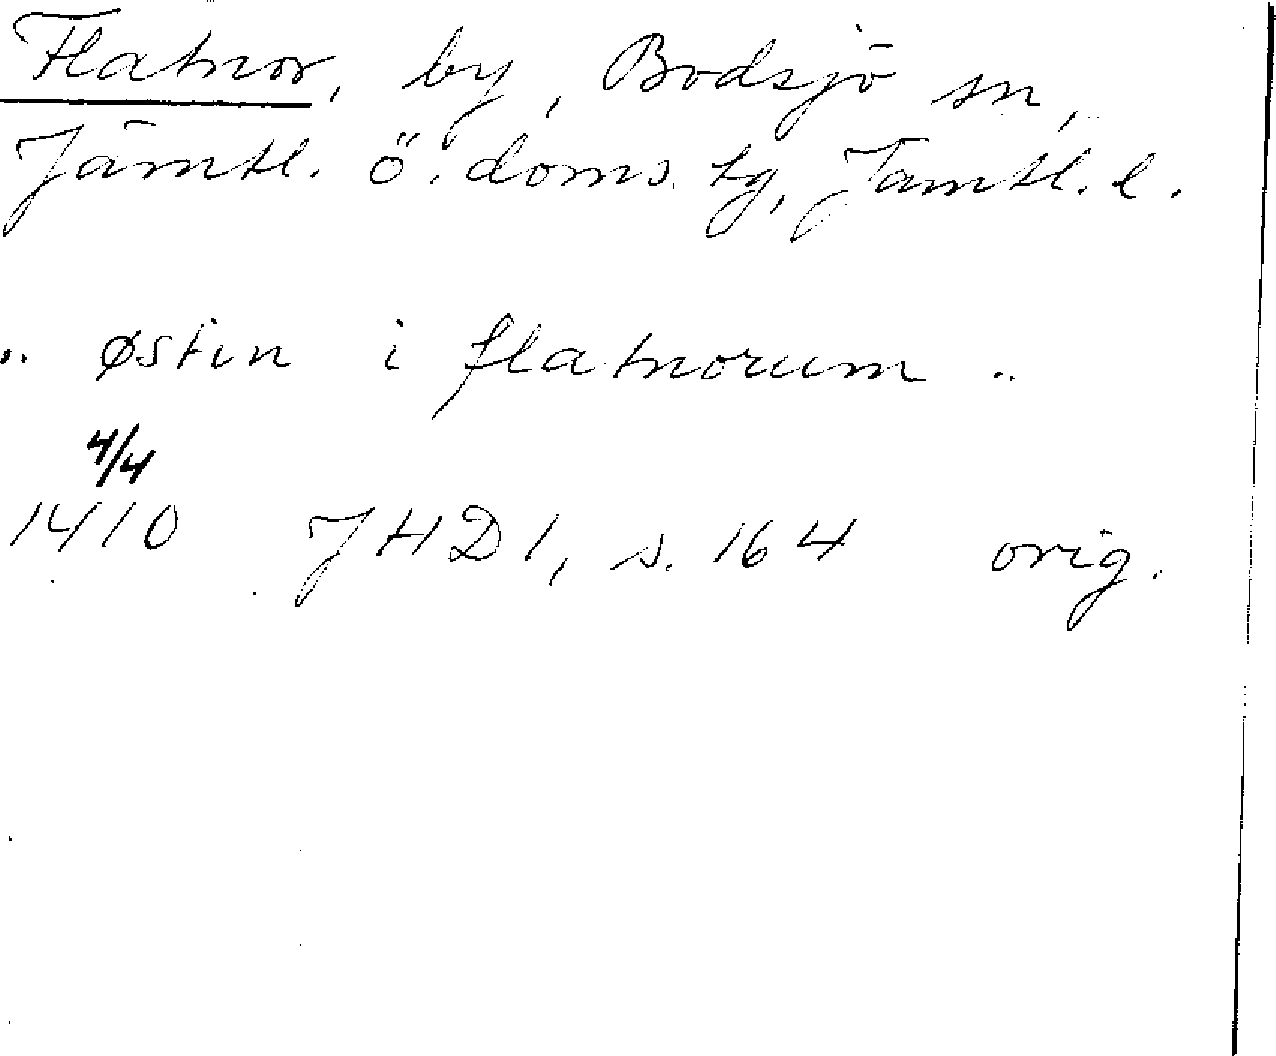 Flatnor, by, Bodsjö sn,
Jämtl. ö. doms. tg, Jämtl. l.
.. østin i flatnorum ..
4/4
1410 JHD 1, s. 164 orig.